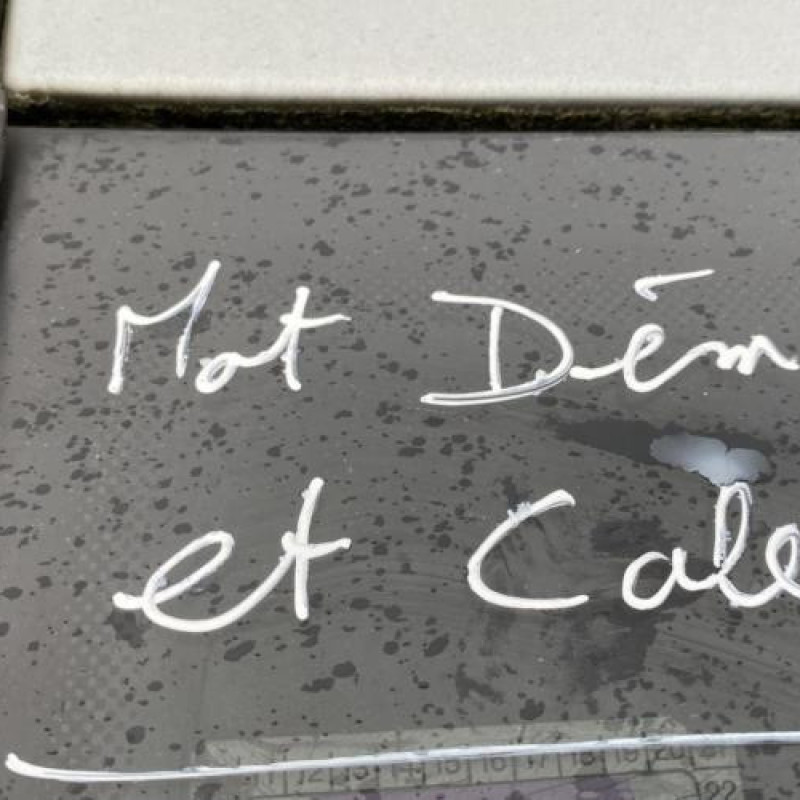 Mot Dém
et Cale
12 13 14 15 16 17 18 19 20 21
22